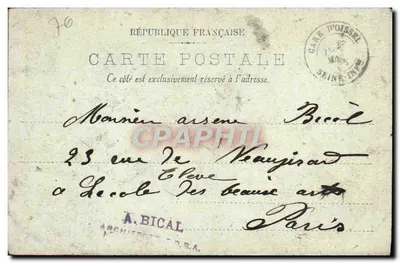 76
RÉPUBLIQUE FRANÇAISE
CARTE POSTALE
Ce côté est exclusivement réservé à l'adresse.
GARE D'OISSEL
SEINE-INFRE
Monsieur arsene Bical
23 rue de Vaugirard
Eleve
a Lecole des beaux arts
Paris
A. BICAL
ARCHITECTE
CPARAMA